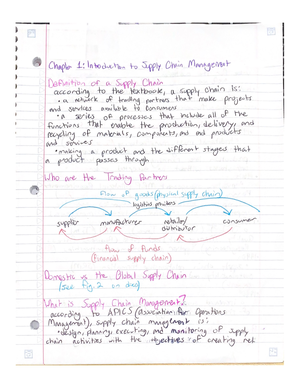 Chapter 1: Introduction to Supply Chain Management
Definition of a Supply Chain
according to the textbook, a supply chain is:
• a network of trading partners that make projects
and services available to consumers
• A series of processes that include all of the
functions that enable the production, delivery, and
recycling of materials, components, and end products
and services
• making a product and the different stages that
a product passes through
Who are the Trading Partners
Flow of goods (physical supply chain)
logistics providers
supplier manufacturer retailer/ consumer
distributor
flow of funds
(financial supply chain)
Domestic vs the Global Supply Chain
(see fig. 2 on doc)
What is Supply Chain Management?
according to APICS (Association for Operations
Management), supply chain management is:
• design, planning, executing, and monitoring of supply
chain activities with the objectives of creating net